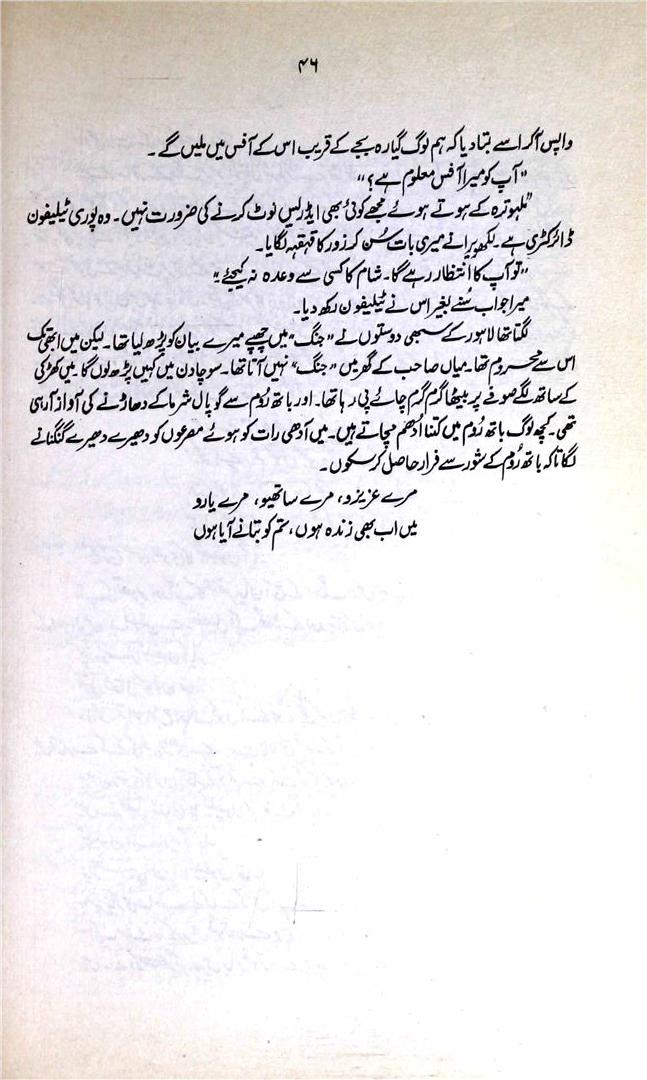 ۴۶
واپس آکر اسے بتا دیا کہ ہم لوگ گیارہ بجے کے قریب اس کے آفس میں ملیں گے۔
"آپ کو میرا آفس معلوم ہے؟"
"ملہوترہ کے ہوتے ہوئے مجھے کوئی بھی ایڈریس نوٹ کرنے کی ضرورت نہیں۔ وہ پوری ٹیلیفون
ڈائرکٹری ہے۔ لکھویرا نے میری بات سُن کر زور کا قہقہہ لگایا۔
"تو آپ کا انتظار رہے گا۔ شام کا کسی سے وعدہ نہ کیجئے"
میرا جواب سُنے بغیر اس نے ٹیلیفون رکھ دیا۔
لگتا تھا لاہور کے سبھی دوستوں نے "جنگ" میں چھپے میرے بیان کو پڑھ لیا تھا۔ لیکن میں ابھی تک
اس سے محروم تھا۔ میاں صاحب کے گھر میں "جنگ" نہیں آتا تھا۔ سوچا دن میں کہیں پڑھ لوں گا۔ میں کھڑکی
کے ساتھ لگے صوفے پر بیٹھا گرم گرم چائے پی رہا تھا۔ اور باتھ رُوم سے گوپال شرما کے دھاڑنے کی آواز آرہی
تھی۔ کچھ لوگ باتھ رُوم میں کتنا اُدھم مچاتے ہیں۔ میں آدھی رات کو ہوئے مصرعوں کو دھیرے دھیرے گنگنانے
لگا تاکہ باتھ رُوم کے شور سے فرار حاصل کر سکوں۔
مرے عزیزو، مرے ساتھیو، مرے یارو
میں اب بھی زندہ ہوں، ستم کو بتانے آیا ہوں